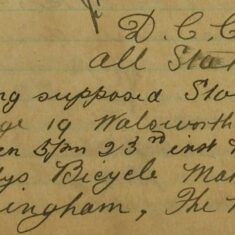 D. C. C
all Stat
ng supposed Sto
ge 19 Walsworth
en 5pm 23rd inst
ys Bicycle Mar
ingham, The